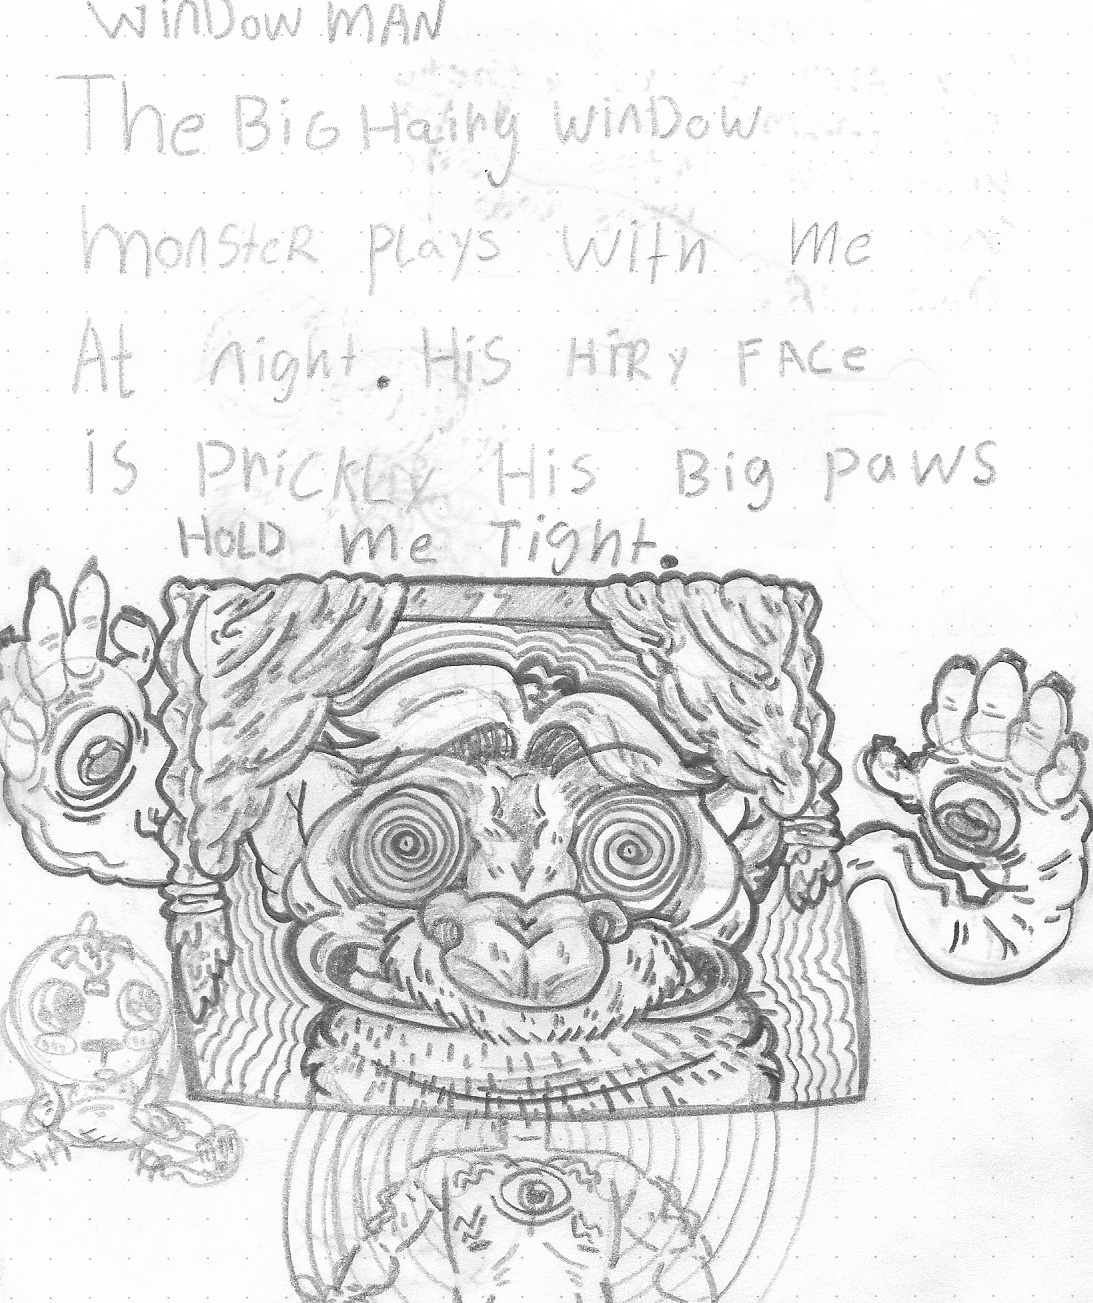 WinDow MAN
The BiG Hairy WinDow
monSteR plays With Me
At night. HiS HiRy FACe
is PRiCKLy His Big paws
HOLD Me Tight.